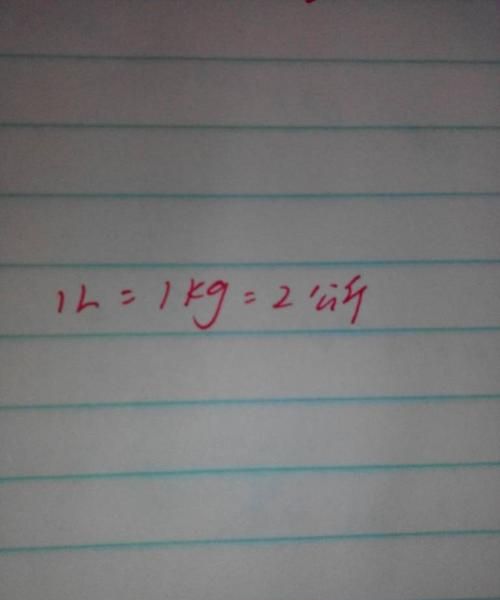 1L = 1kg = 2市斤